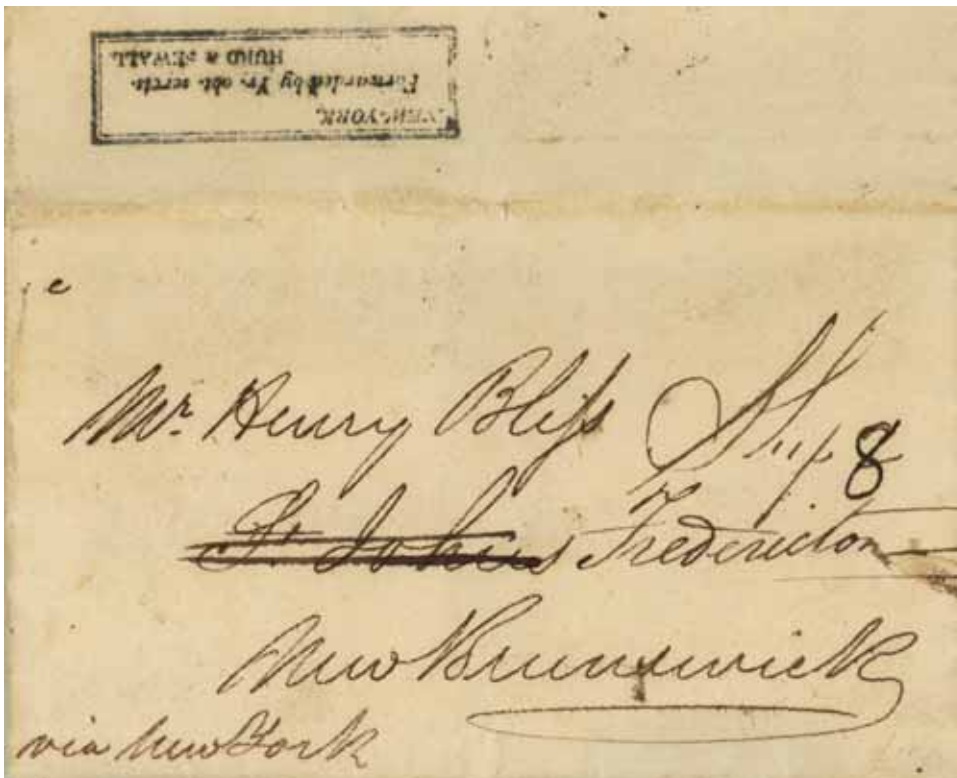 NEW-YORK.
Forwarded by Yr. obt. servts.
HURD & SEWALL
Mr. Henry Bliss Ship 8
St. Johns Fredericton
New Brunswick
via New York